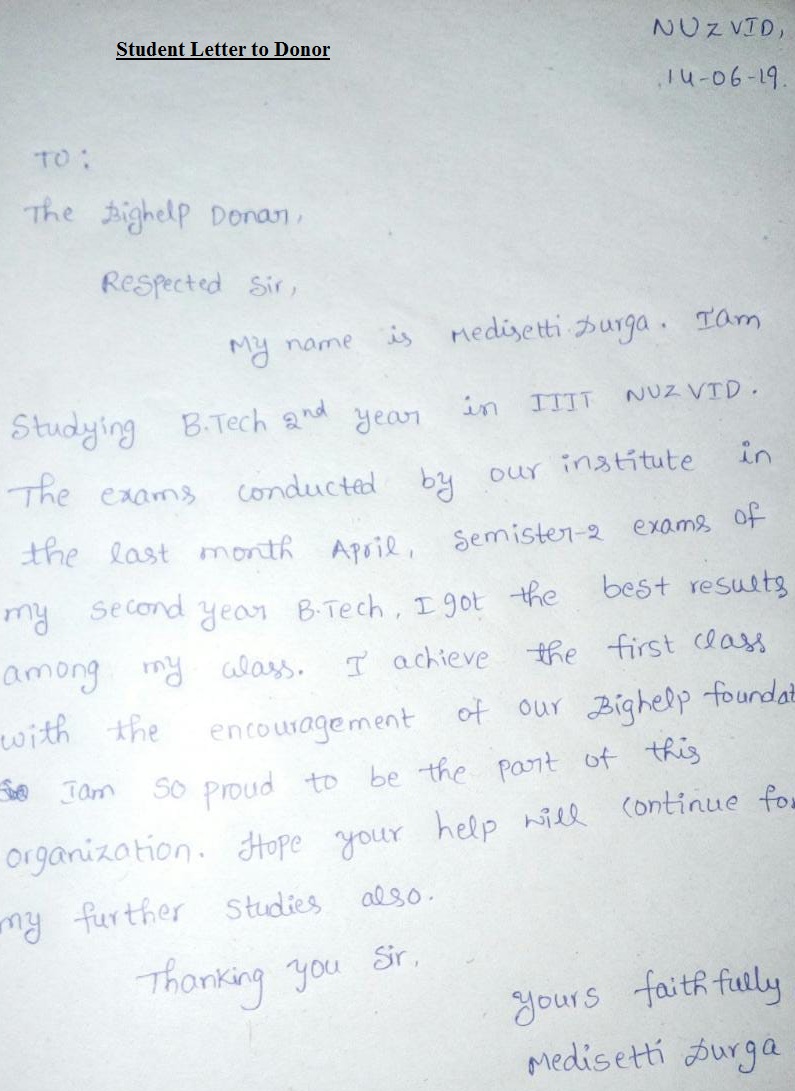 Student Letter to Donor
NUZVID,
14-06-19.
TO:
The Bighelp Donar,
Respected Sir,
My name is Medisetti Durga. Iam
Studying B.Tech 2nd year in IIIT NUZVID.
The exams conducted by our institute in
the last month April, Semister-2 exams of
my second year B.Tech, I got the best results
among my class. I achieve the first class
with the encouragement of our Bighelp foundat
Iam so proud to be the part of this
organization. Hope your help will continue for
my further studies also.
Thanking you Sir.
yours faithfully
Medisetti Durga